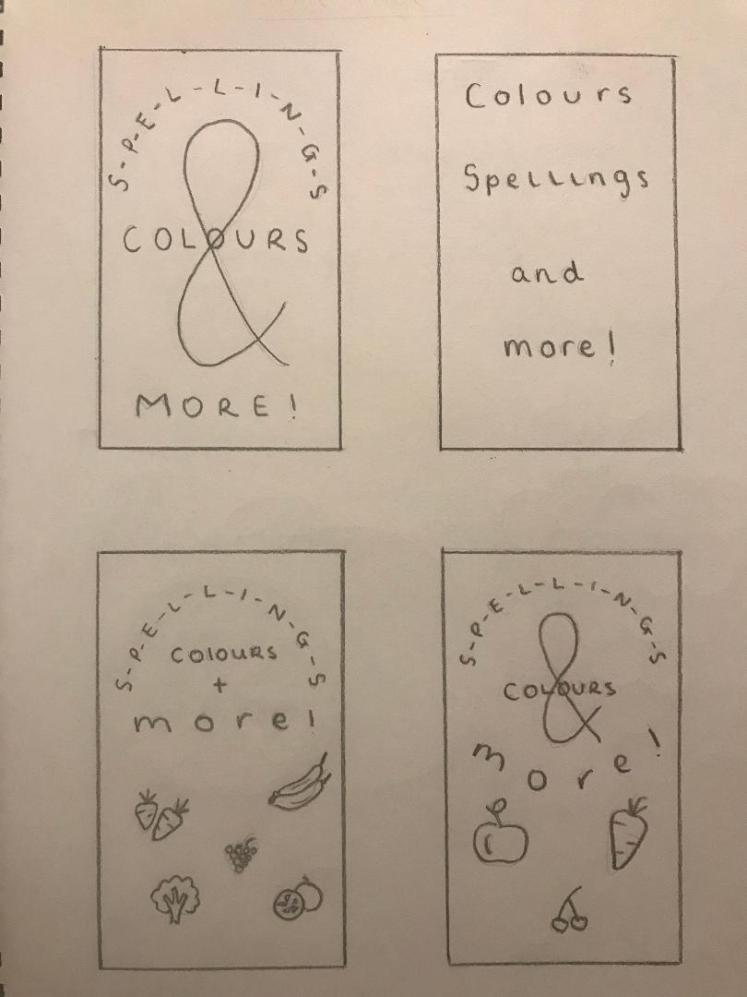 S-P-E-L-L-I-N-G-S
&
COLOURS
MORE!
Colours
Spellings
and
more!
S-P-E-L-L-I-N-G-S
COLOURS
+
more!
S-P-E-L-L-I-N-G-S
&
COLOURS
more!